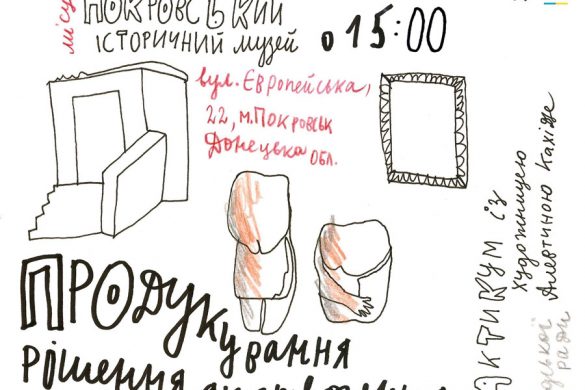 місц
ПОКРОВСЬКИЙ
ІСТОРИЧНИЙ МУЗЕЙ
о 15:00
вул. Європейська,
22, м. Покровськ
Донецька обл.
ПРОДУКУвання
рішення
ктикум із
художницею
Алевтиною Кахідзе
ради